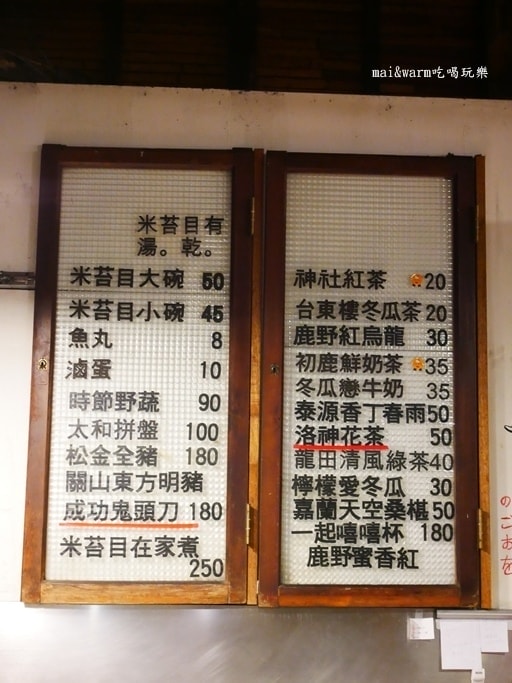 mai&warm吃喝玩樂
米苔目有
湯。乾。
米苔目大碗 50
米苔目小碗 45
魚丸 8
滷蛋 10
時節野蔬 90
太和拼盤 100
松金全豬 180
關山東方明豬
成功鬼頭刀 180
米苔目在家煮
250
神社紅茶 20
台東樓冬瓜茶 20
鹿野紅烏龍 30
初鹿鮮奶茶 35
冬瓜戀牛奶 35
泰源香丁春雨 50
洛神花茶 50
龍田清風綠茶 40
檸檬愛冬瓜 30
嘉蘭天空桑椹 50
一起嘻嘻杯 180
鹿野蜜香紅
の
ご
お
を